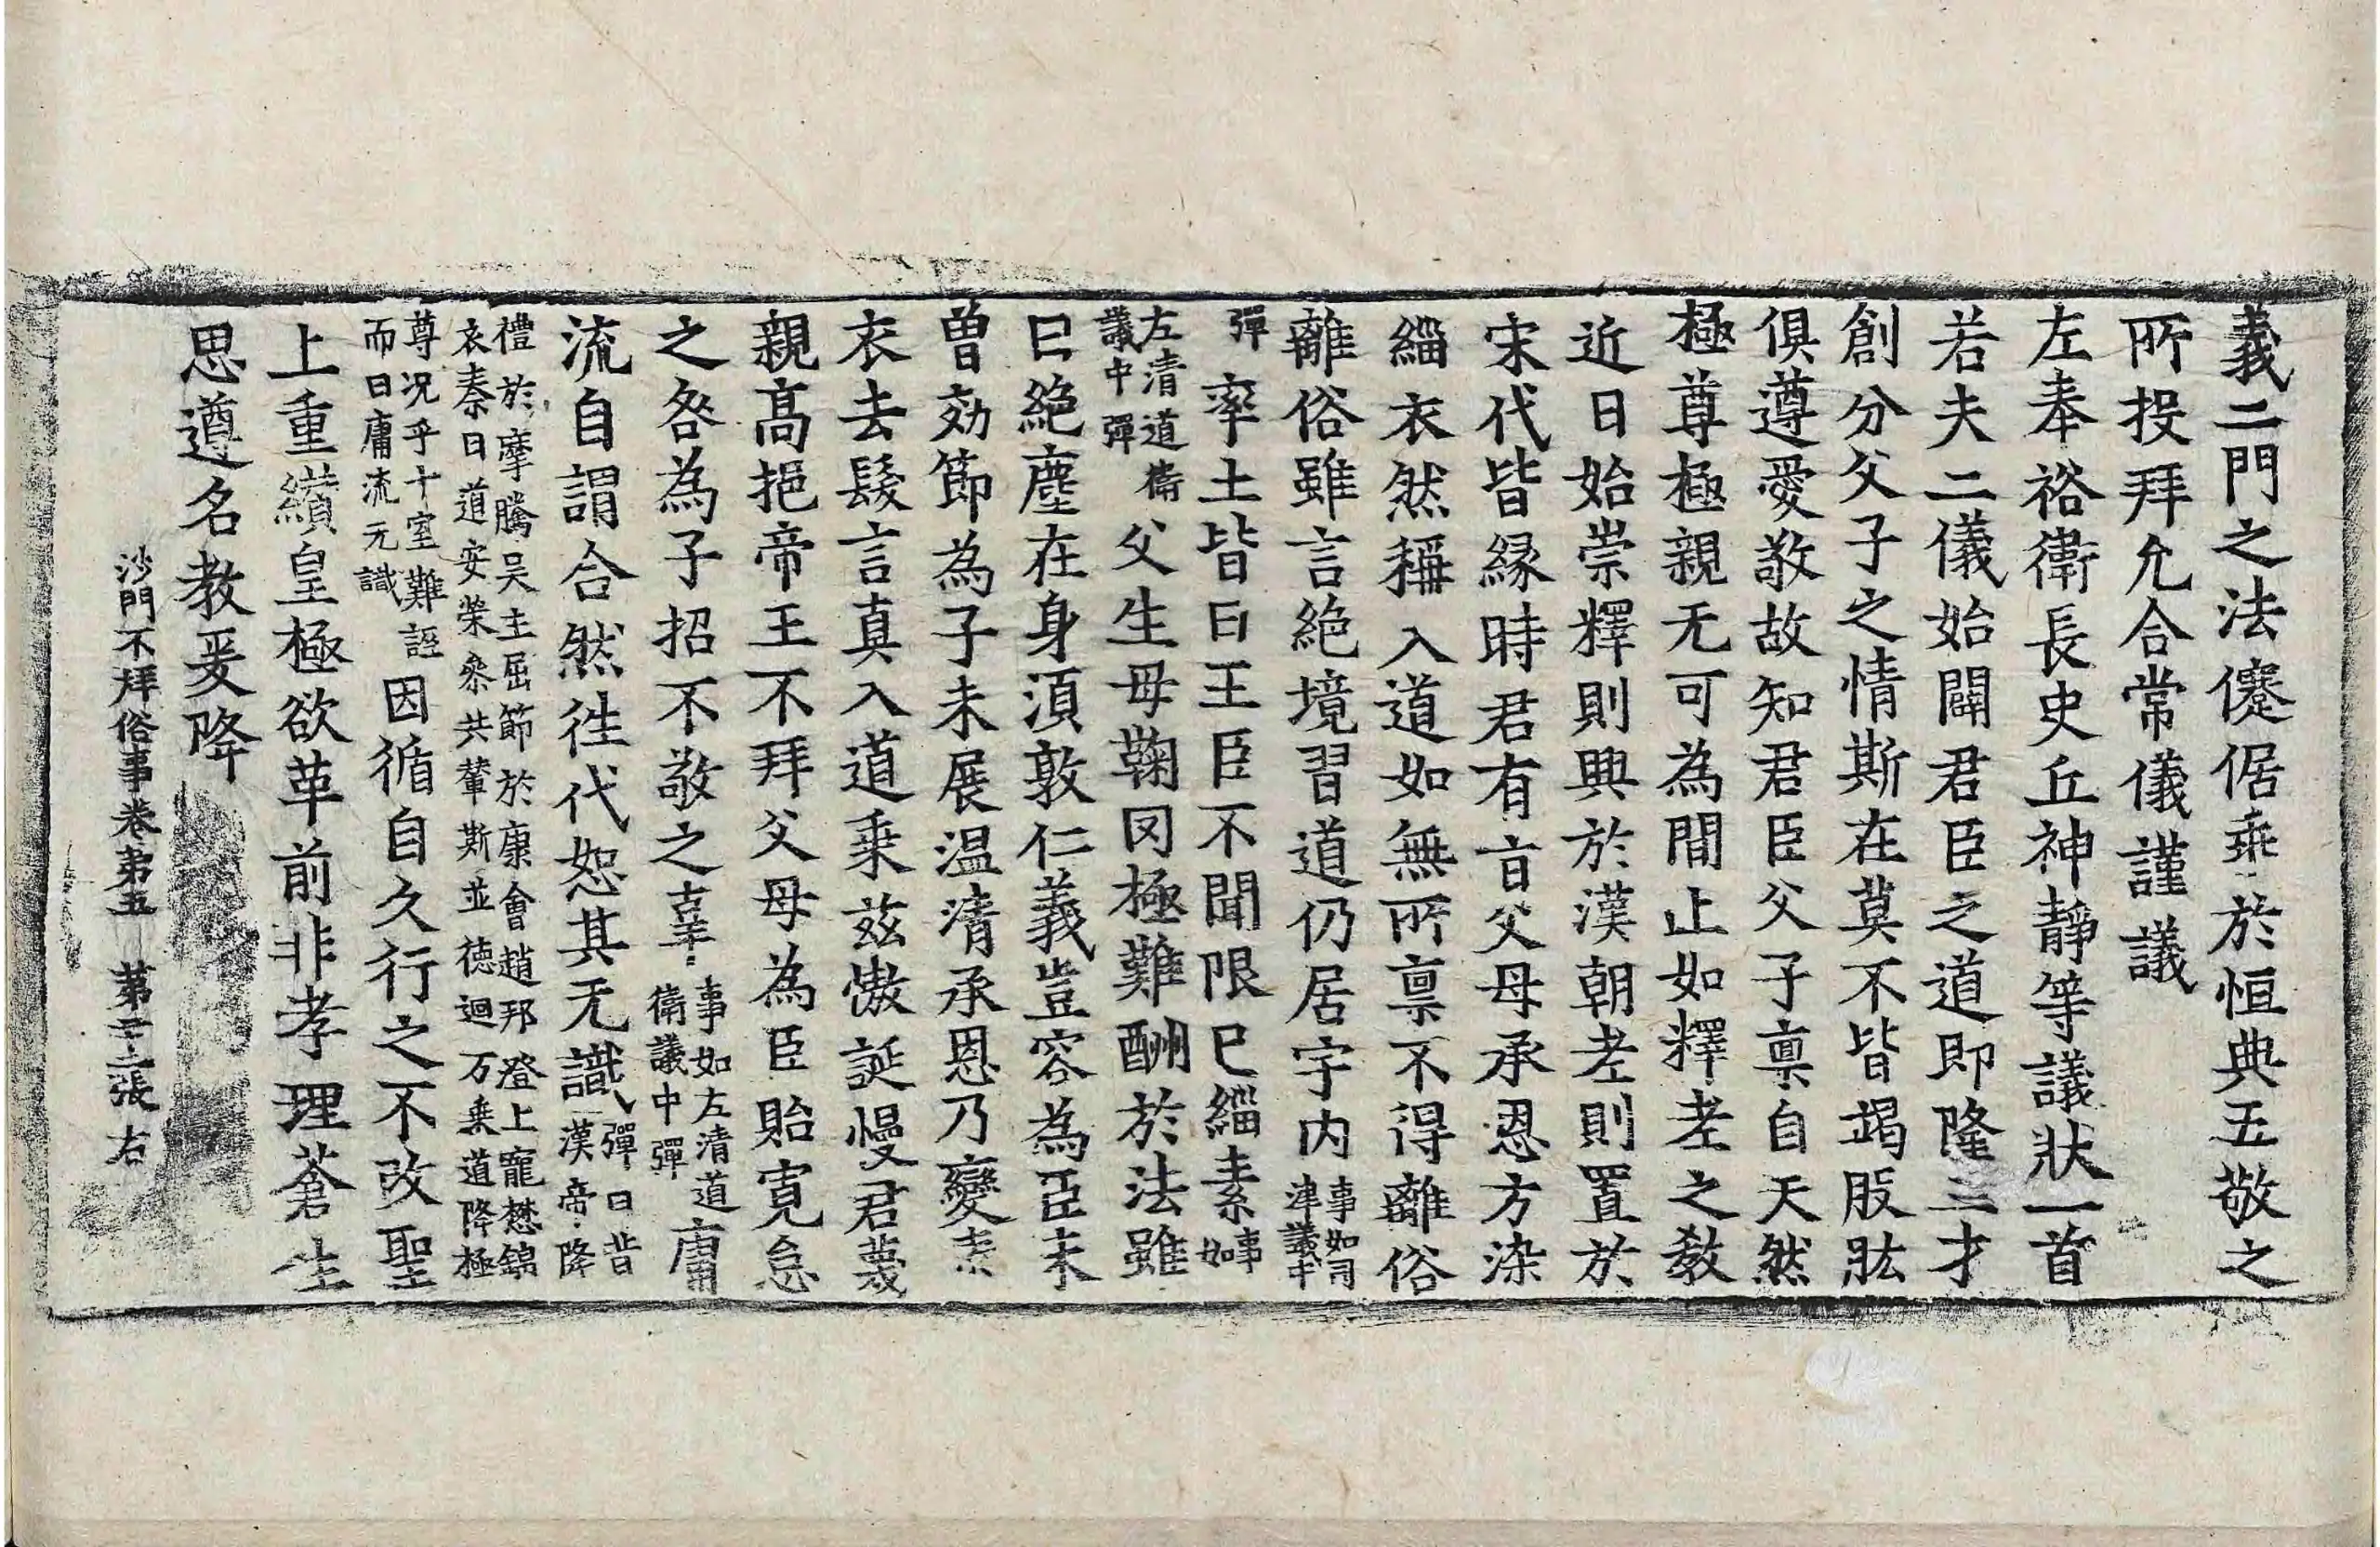 義二門之法僾倨乖於恒典五敬之
所投拜允合常儀謹議
左奉裕衛長史丘神靜等議狀一首
若夫二儀始闢君臣之道即隆三才
創分父子之情斯在莫不皆竭股肱
俱遵愛敬故知君臣父子禀自天然
極尊極親无可為間止如釋老之敎
近日始崇釋則興於漢朝老則置於
宋代皆緣時君有旨父母承恩方染
緇衣然稱入道如無所禀不得離俗
離俗雖言絶境習道仍居宇内事如司津議中
彈率土皆曰王臣不聞限巳緇素事如
左清道衛議中彈父生母鞠罔極難酬於法雖
曰絶塵在身湏敦仁義豈容為臣未
曾効節為子未展温清承恩乃變素
衣去髮言真入道乗兹慠誕慢君蔑
親髙挹帝王不拜父母為臣貽寛怠
之咎為子招不敬之辜事如左清道衛議中彈庸
流自謂合然徃代恕其无識彈曰昔漢帝降
禮於摩騰吴主屈節於康會趙邦澄上寵懋錦
衣秦日道安榮叅共輦斯並德迴万乗道降極
尊况乎十室難誣而曰庸流无識因循自久行之不改聖
上重纘皇極欲革前非孝理蒼生
思遵名教爰降
沙門不拜俗事卷苐五 苐三二張 右